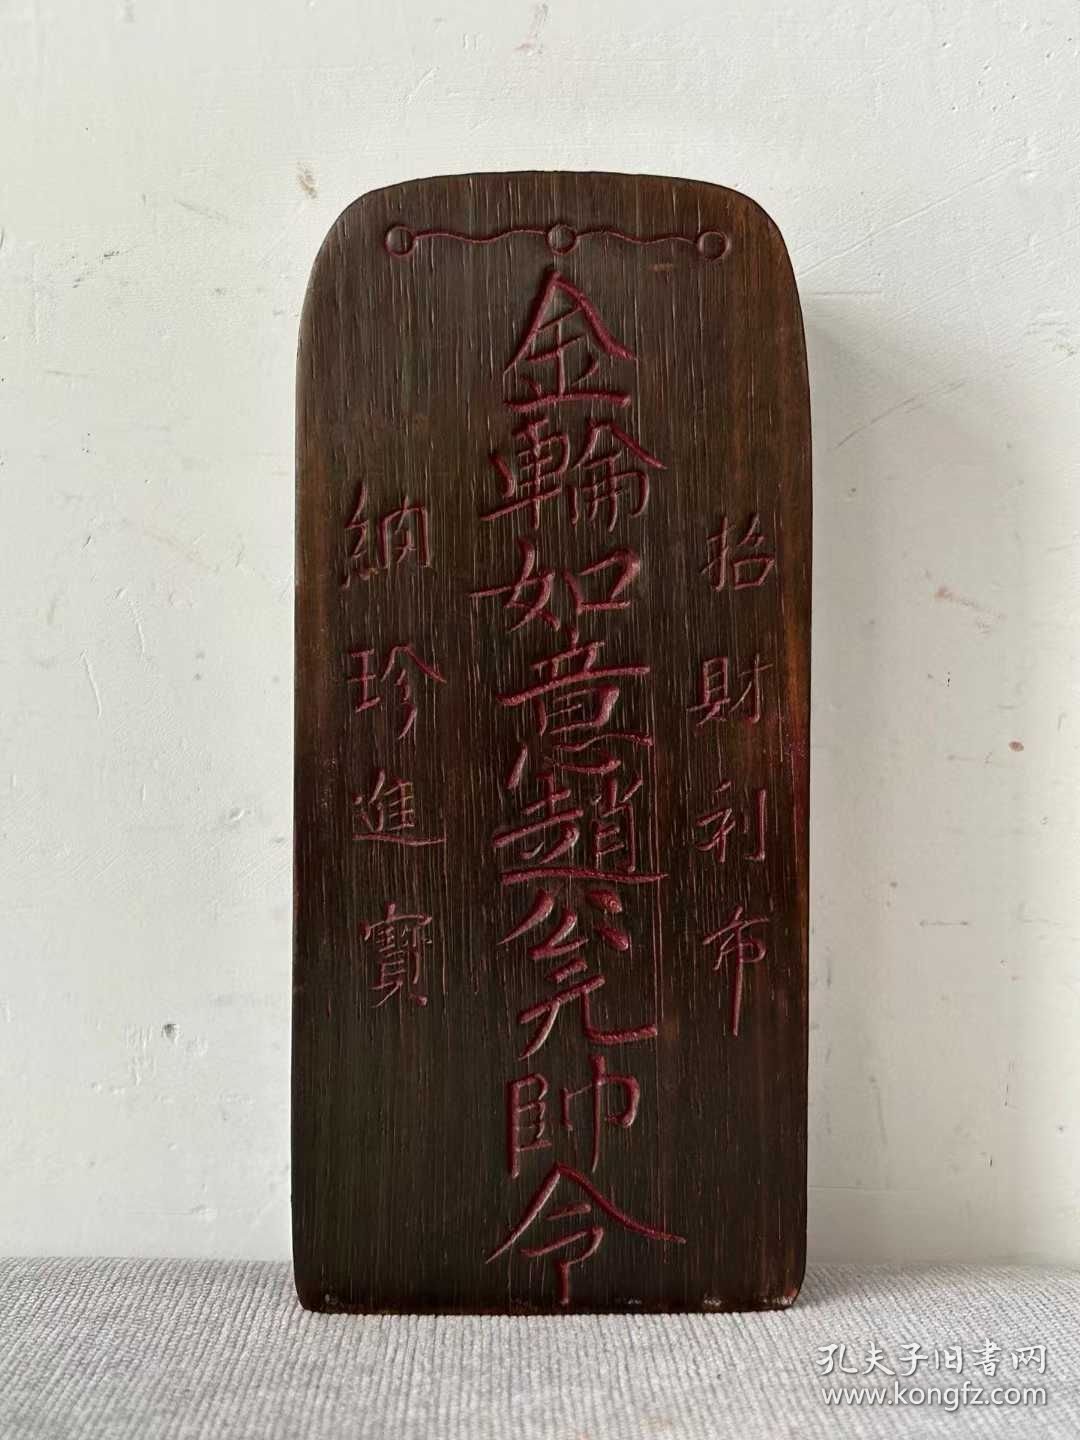 金輪如意趙公元帥令
招財利市
納珍進寶
孔夫子旧書网
www.kongfz.com